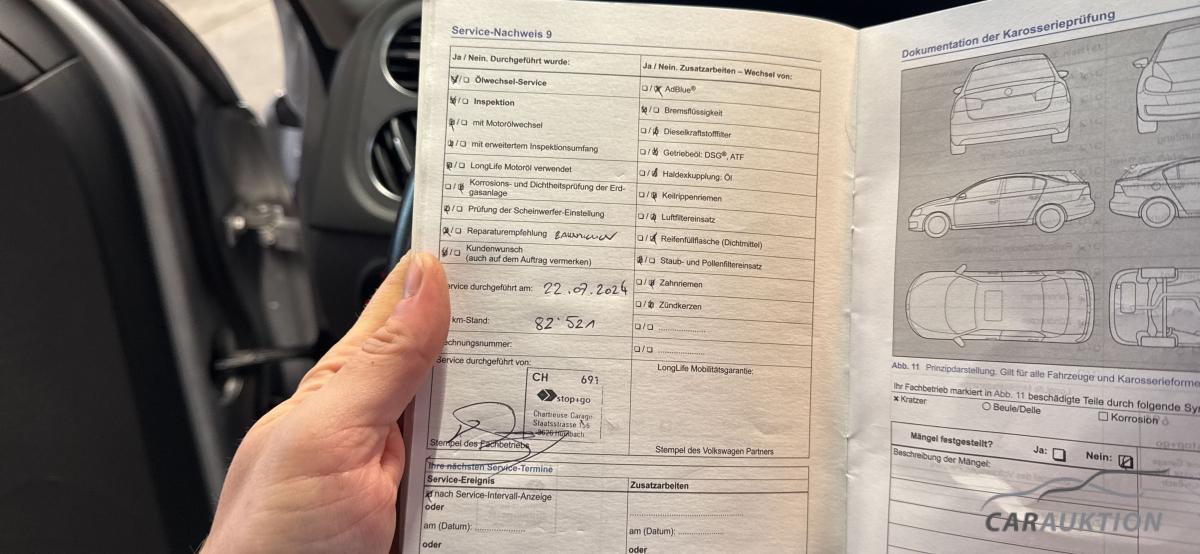 Service-Nachweis 9
Ja / Nein. Durchgeführt wurde:
Ölwechsel-Service
Inspektion
mit Motorölwechsel
mit erweitertem Inspektionsumfang
LongLife Motoröl verwendet
Korrosions- und Dichtheitsprüfung der Erd-
gasanlage
Prüfung der Scheinwerfer-Einstellung
Reparaturempfehlung
Kundenwunsch
(auch auf dem Auftrag vermerken)
ervice durchgeführt am: 22.07.2024
km-Stand: 82'521
echnungsnummer:
Service durchgeführt von:
CH 691
stop+go
Chartreuse Garage
Staatsstrasse 156
Stempel des Fachbetriebs
Ja / Nein. Zusatzarbeiten – Wechsel von:
AdBlue®
Bremsflüssigkeit
Dieselkraftstofffilter
Getriebeöl: DSG®, ATF
Haldexkupplung: Öl
Keilrippenriemen
Luftfiltereinsatz
Reifenfüllflasche (Dichtmittel)
Staub- und Pollenfiltereinsatz
Zahnriemen
Zündkerzen
LongLife Mobilitätsgarantie:
Stempel des Volkswagen Partners
Ihre nächsten Service-Termine
Service-Ereignis
nach Service-Intervall-Anzeige
oder
am (Datum):
oder
Zusatzarbeiten
am (Datum):
oder
Dokumentation der Karosserieprüfung
Abb. 11 Prinzipdarstellung. Gilt für alle Fahrzeuge und Karosserieforme
Ihr Fachbetrieb markiert in Abb. 11 beschädigte Teile durch folgende Sy
x Kratzer
Beule/Delle
Korrosion
Mängel festgestellt?
Ja:
Nein:
Beschreibung der Mängel:
CARAUKTION